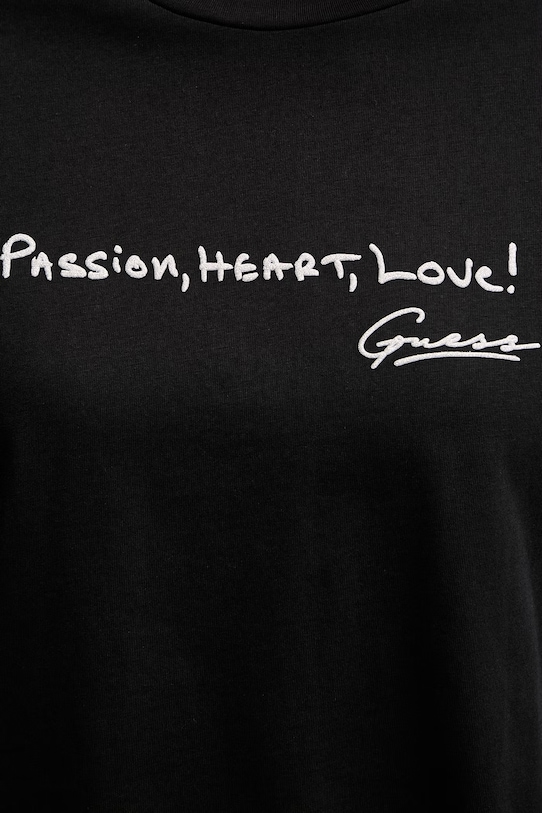 PASSION, HEART, LOVE!
Guess